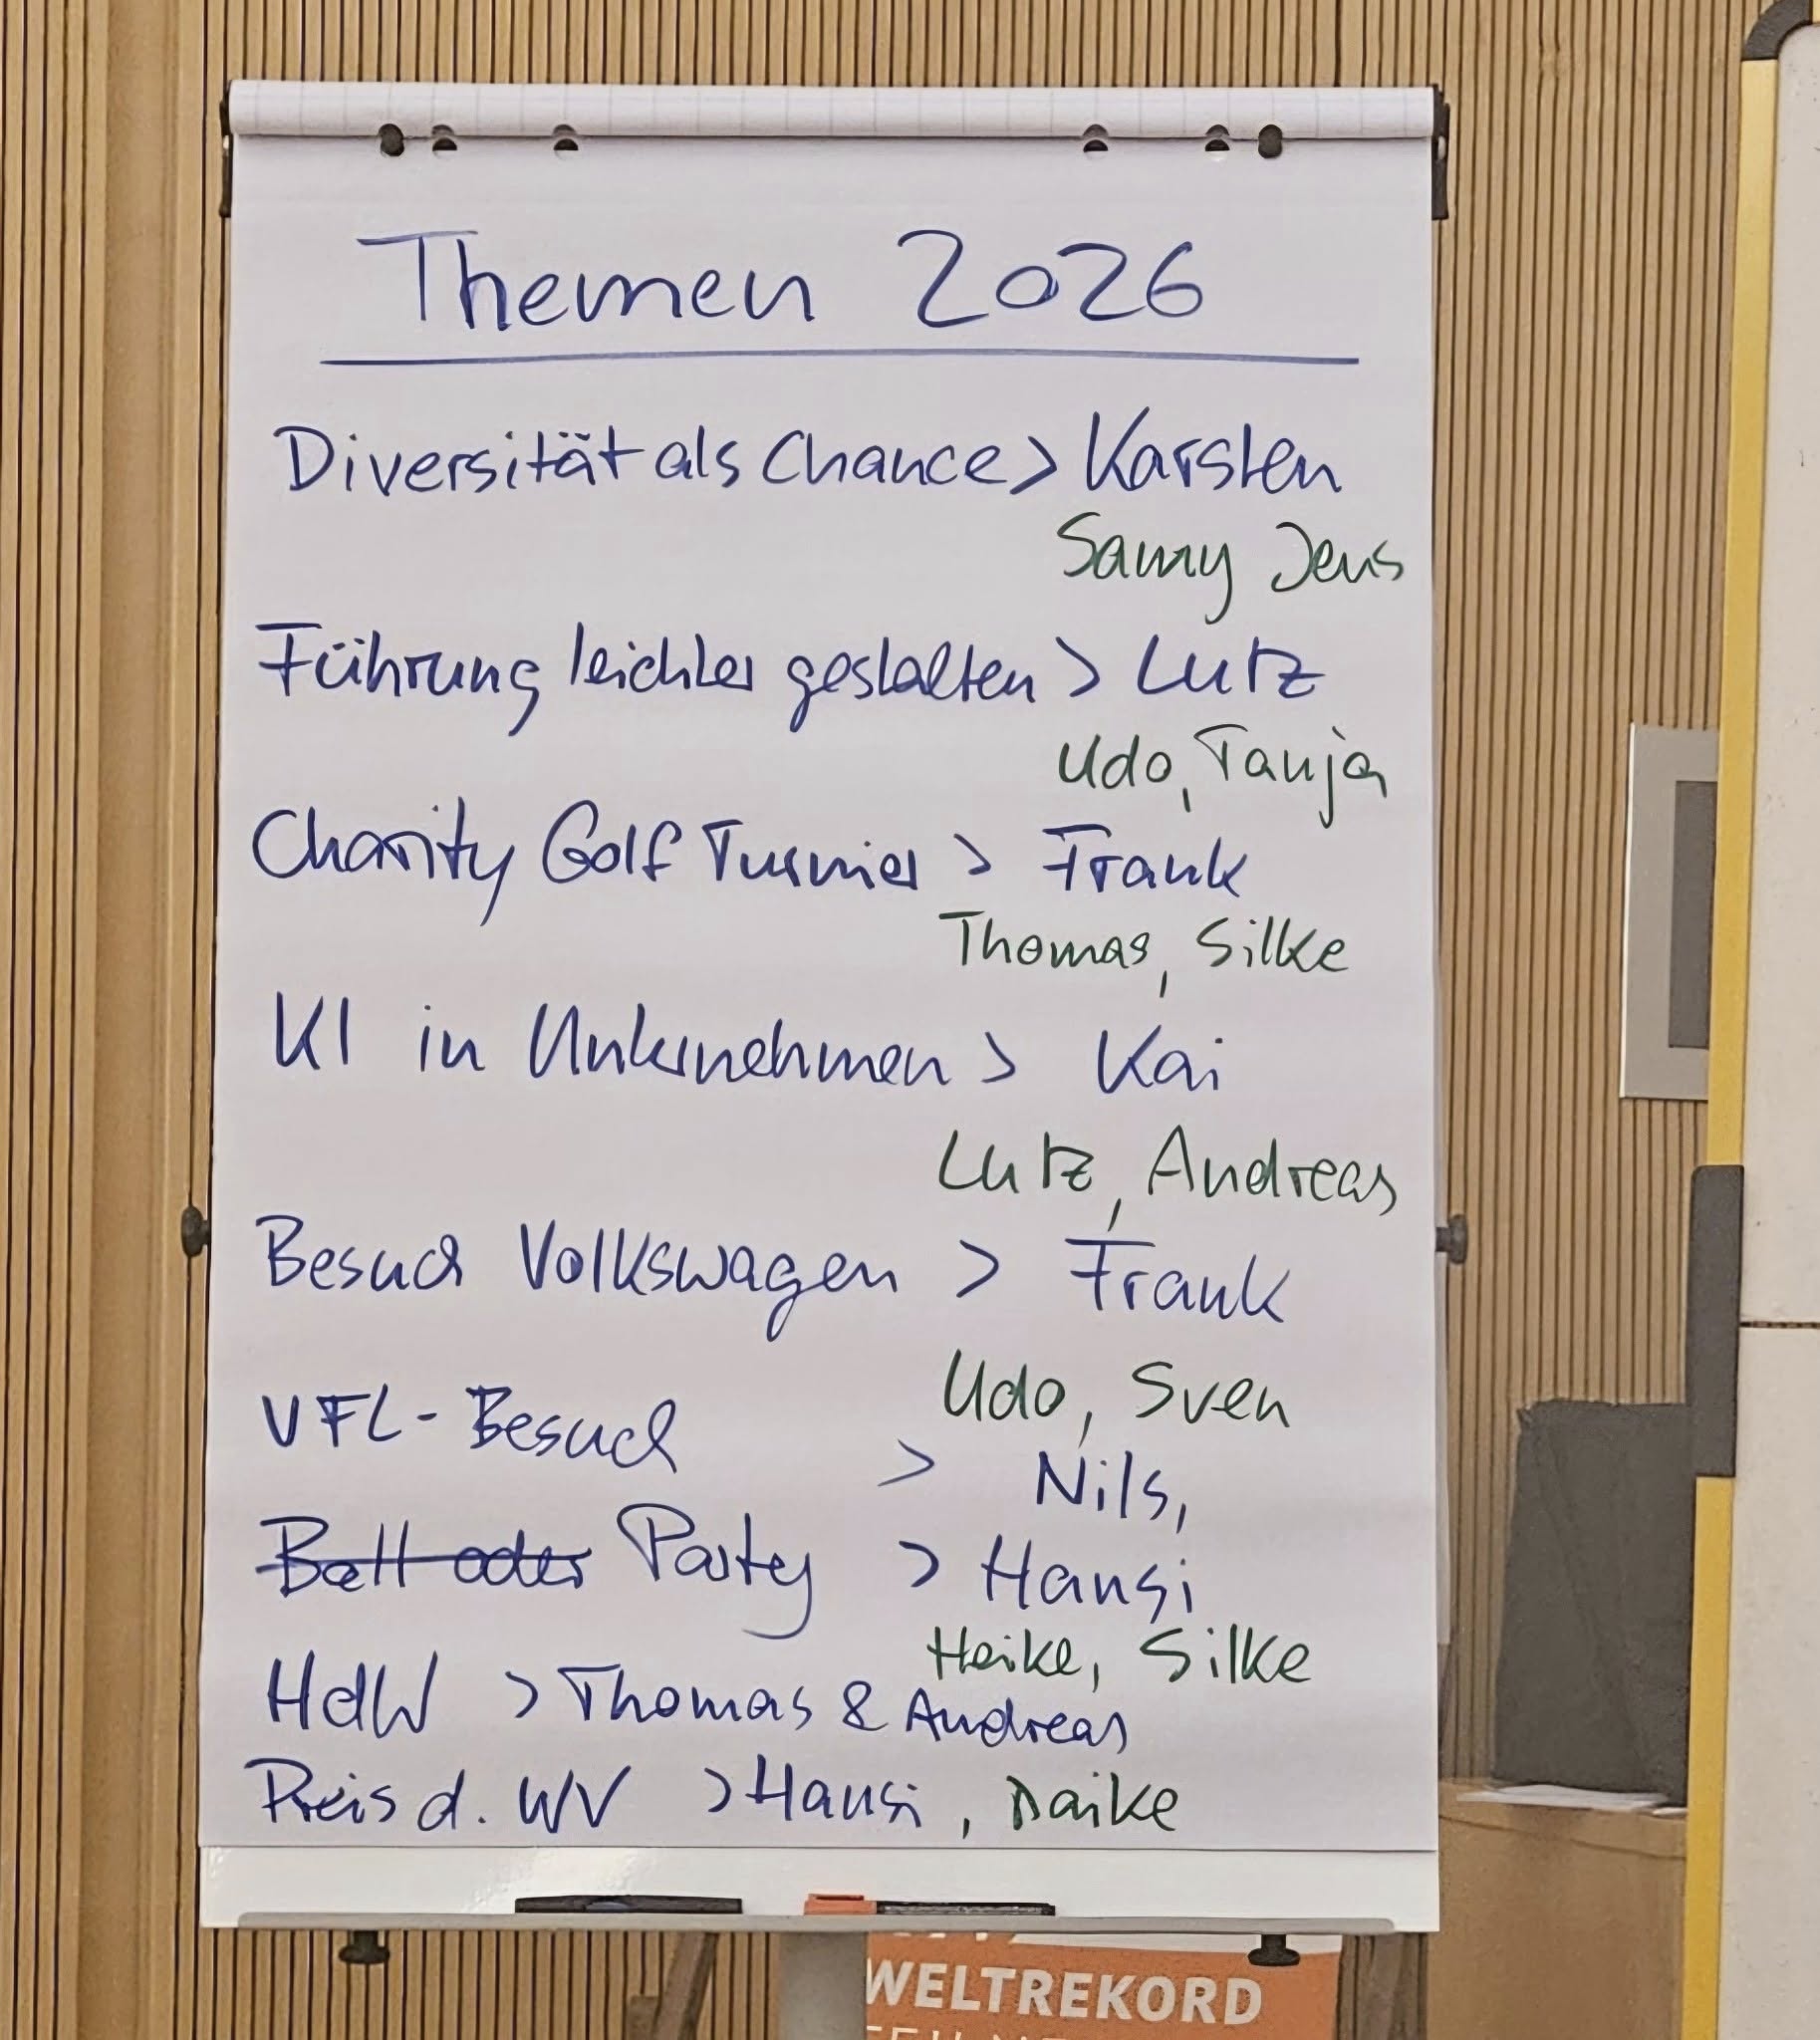 Themen 2026
Diversität als Chance > Karsten
Samy Jens
Führung leichter gestalten > Lutz
Udo, Tanja
Charity Golf Turnier > Frank
Thomas, Silke
KI in Unternehmen > Kai
Lutz, Andreas
Besuch Volkswagen > Frank
Udo, Sven
VFL-Besuch > Nils,
Ball oder Party > Hansi
Heike, Silke
HdW > Thomas & Andreas
Preis d. WV > Hansi, Daike
WELTREKORD